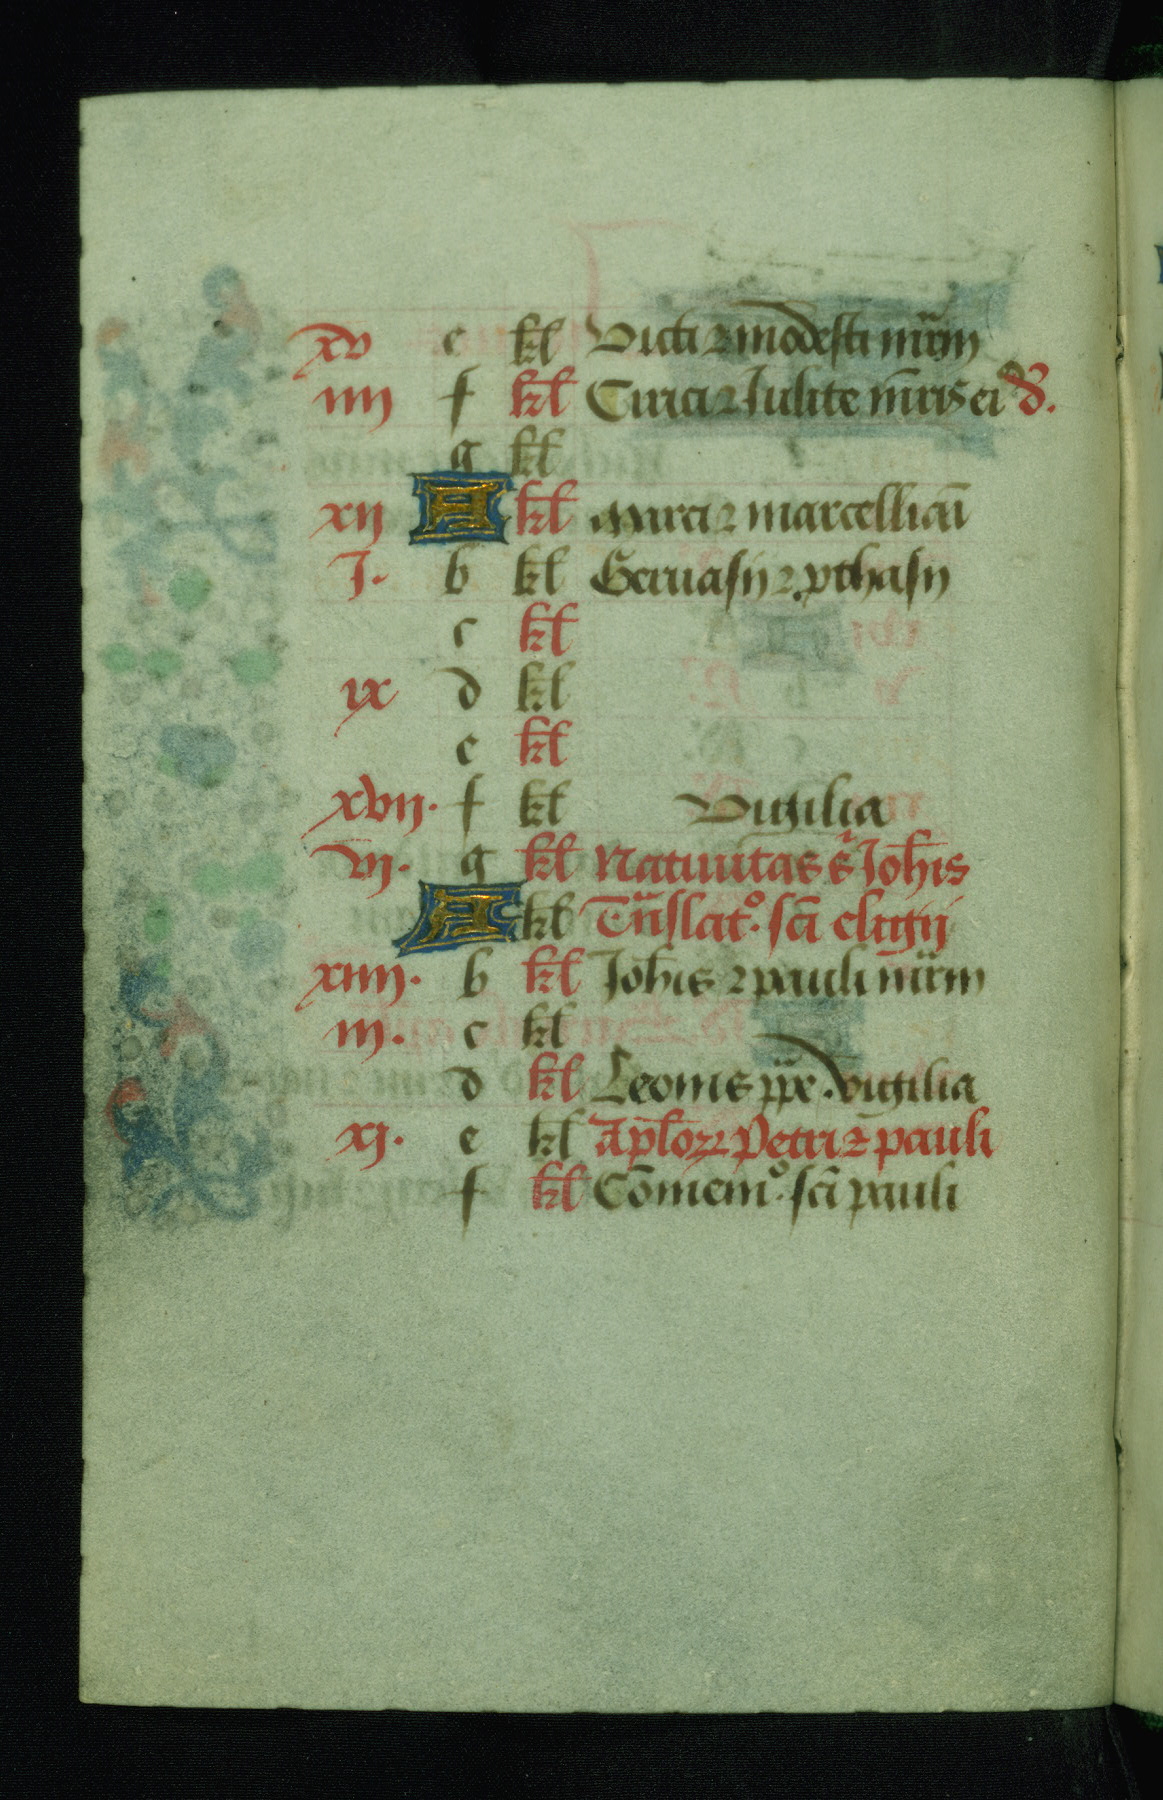 xv e kl Victi ⁊ modesti mr̄m
iiii f kl Cirici ⁊ Iulite mr̄is ei⁹ d̄.
g kl
xii A kl Marci ⁊ marcelliāi
I. b kl Geruasii ⁊ ꝓthasii
c kl
ix d kl
e kl
xvii. f kl Vigilia
vi. g kl Natiuitas s̄ Ioh̄is
A kl Trāslatº. sc̄i eligij
xiiii. b kl Ioh̄is ⁊ pauli mr̄m
iii. c kl
d kl Leonis pp̄e. vigilia
xi. e kl Apl̄oꝝ Petri ⁊ pauli
f kl Cōmemº. sc̄i pauli